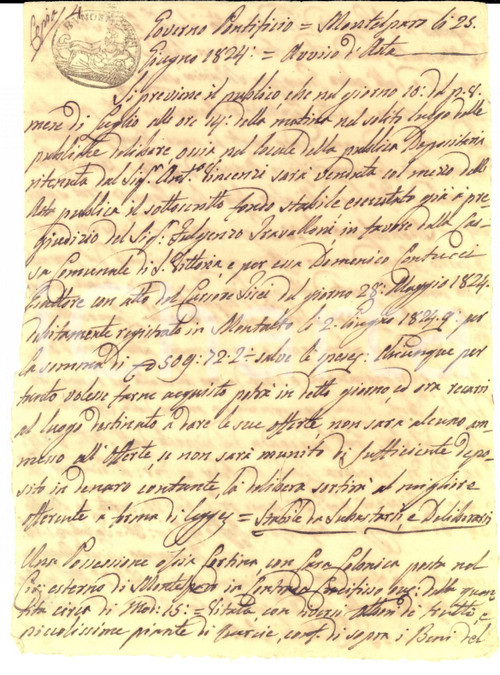 Governo Pontificio = Montelparo li 25.
Giugno 1824: = Avviso d'Asta
Si previene il publico che nel giorno 10: del p.º
mese di Luglio alle ore 14: della matina nel solito luogo delle
publiche delibere, ossia nel locale della publica Depositeria
ritenuta dal Sig.r Ant.o Vincenzi sarà venduto col mezzo dell'
Asta publica il sottoscritto fondo stabile esecutato già a pre
giudizio del Sig.r Fulgenzo Travalloni in favore della Cas-
sa Comunale di S. Vittoria, e per essa Domenico Contucci
Esattore con atto del Cursore del giorno 28: Maggio 1824
debitamente registrato in Montalto li 2: Giugno 1824. per
la somma di 509: 12: 2 salve le spese: Chiunque per
tanto volesse farne acquisto potrà in detto giorno, ed ora recarsi
al luogo destinato a dare le sue offerte, non sarà alcuno am-
messo all'Offerte, se non sarà munito di sufficiente depo-
sito in denaro contante, la delibera sortirà al migliore
offerente a forma di legge = Stabile da Subastarsi, e Deliberarsi
Una Possessione ossia Cortina con Casa Colonica posta nel
esterno di Montelparo in Contrada della quan
tità circa di Mod: 15: = Vitata, con diversi alberi da frutto, e
piccolissime piante di quercie, conf: di sopra i Beni del